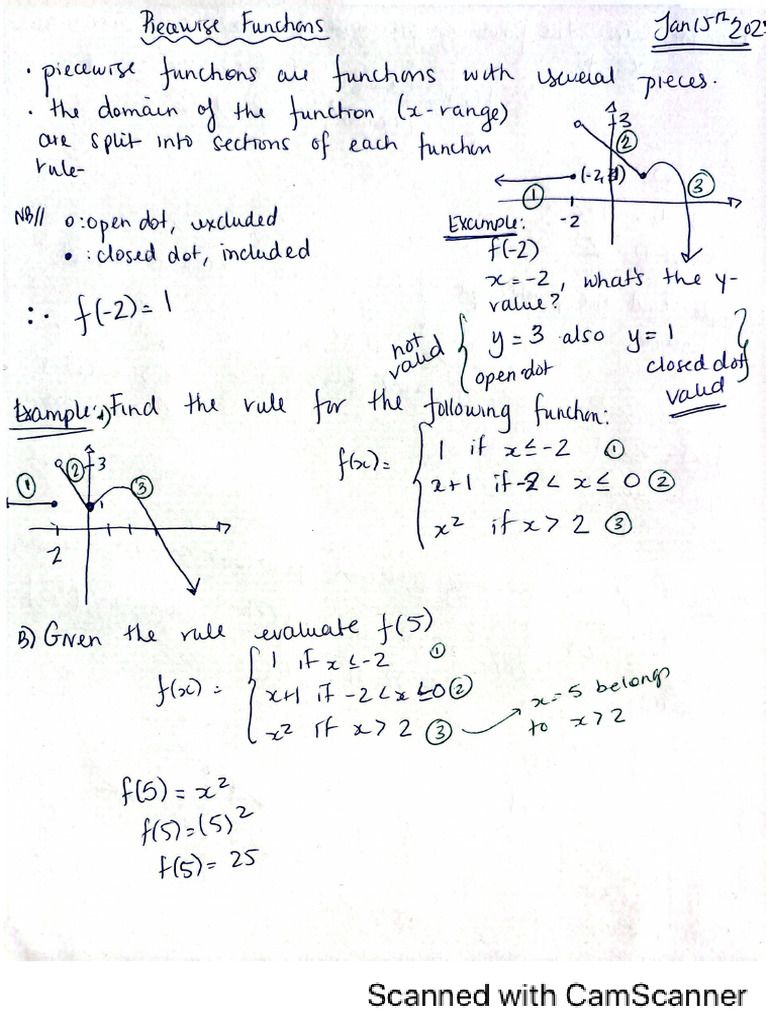 Piecewise Functions
Jan 15th 202
• piecewise functions are functions with several pieces.
• the domain of the function (x-range)
are split into sections of each function
rule-
3
②
• (-2, 1)
①
③
-2
NB// o: open dot, excluded
• : closed dot, included
∴ f(-2) = 1
Example:
f(-2)
x = -2, what's the y-
value?
not
valid
{ y = 3 also y = 1 }
open dot
closed dot
valid
Example: A) Find the rule for the following function:
① ② 3 ③
1
-2
f(x) = { 1 if x ≤ -2 ①
x+1 if -2 < x ≤ 0 ②
x² if x > 2 ③
B) Given the rule evaluate f(5)
f(x) = { 1 if x ≤ -2 ①
x+1 if -2 < x ≤ 0 ②
x² if x > 2 ③
x = 5 belongs
to x > 2
f(5) = x²
f(5) = (5)²
f(5) = 25
Scanned with CamScanner